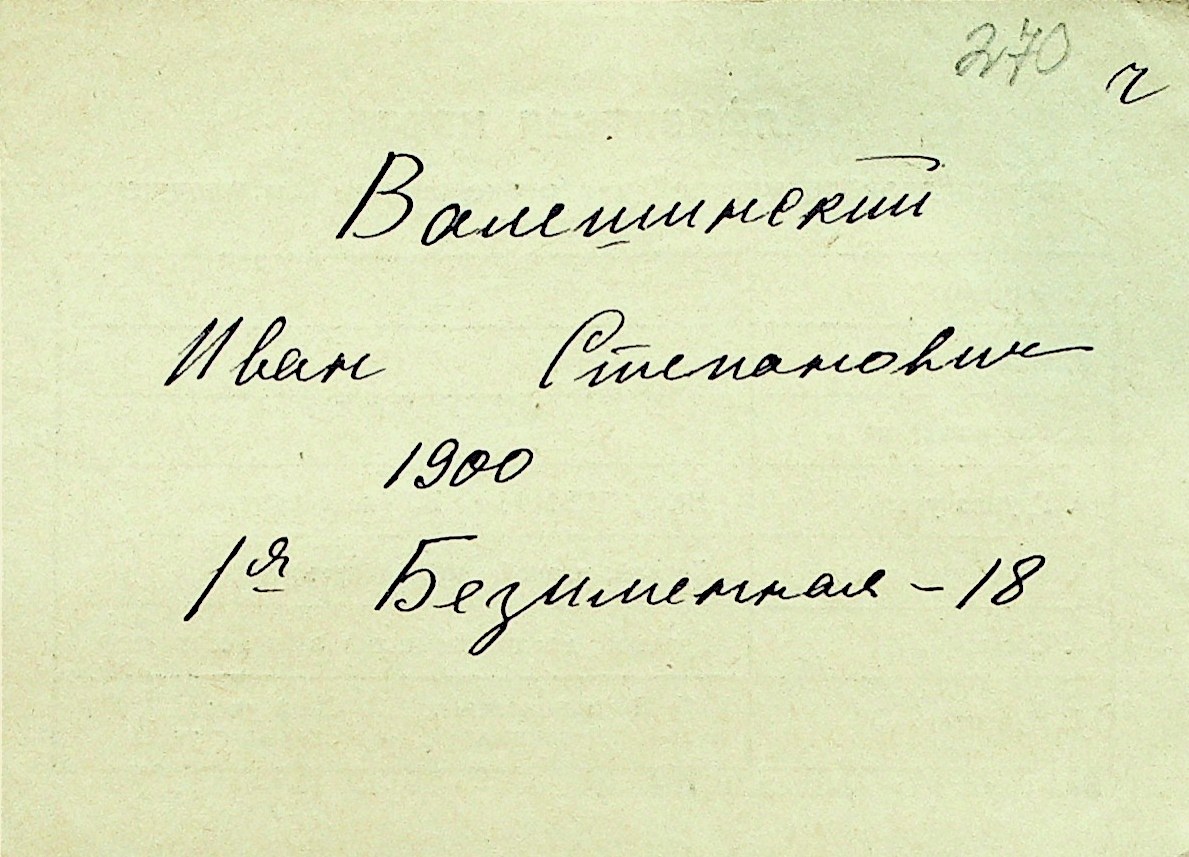 270 ч
Валешинский
Иван Степанович
1900
1я Безименная - 18